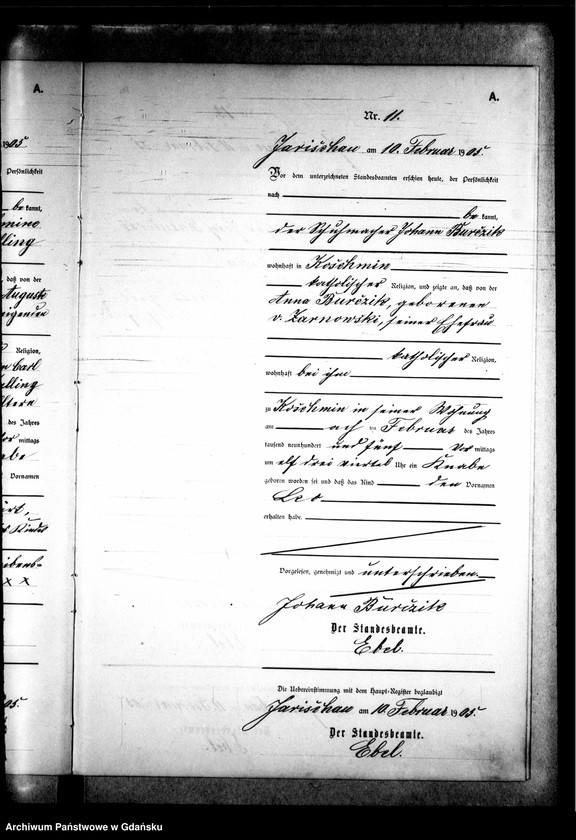 A.
1905.
Persönlichkeit
be kannt,
daß von der
Auguste
Religion,
Carl
des Jahres
mittags
Vornamen
x x
05.
A.
Nr. 11.
Jarischau am 10. Februar 1905.
Vor dem unterzeichneten Standesbeamten erschien heute, der Persönlichkeit
nach
be kannt,
der Schuhmacher Johann Burčzik
wohnhaft in Koschmin
katholischer Religion, und zeigte an, daß von der
Anna Burčzik, geborenen
v. Zarnowski, seiner Ehefrau
katholischer Religion,
wohnhaft bei ihm
zu Koschmin in seiner Wohnung
am acht ten Februar des Jahres
tausend neunhundert und fünf Vor mittags
um elf drei viertel Uhr ein Knabe
geboren worden sei und daß das Kind den Vornamen
Leo
erhalten habe.
Vorgelesen, genehmigt und unterschrieben.
Johann Burčzik
Der Standesbeamte.
Ebel.
Die Uebereinstimmung mit dem Haupt-Register beglaubigt
Jarischau am 10. Februar 1905.
Der Standesbeamte.
Ebel.
Archiwum Państwowe w Gdańsku